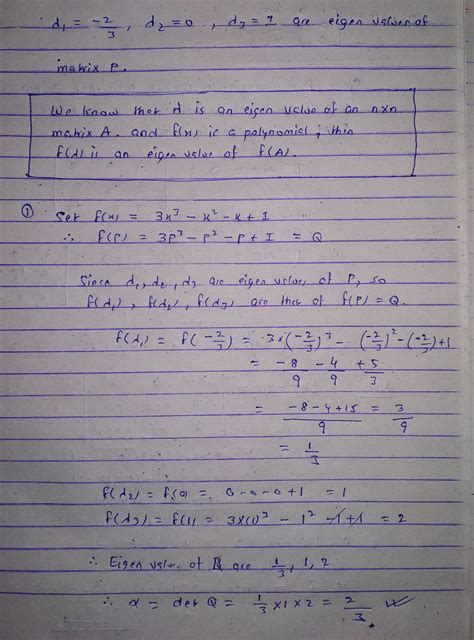 d₁ = -2/3 , d₂ = 0 , d₃ = 1 are eigen values of
matrix P.
We know that d is an eigen value of an nxn
matrix A. and f(x) is a polynomial, then
f(d) is an eigen value of f(A).
① Set f(x) = 3x³ - x² - x + 1
∴ f(P) = 3P³ - P² - P + I = Q
Since d₁, d₂, d₃ are eigen values of P, so
f(d₁), f(d₂), f(d₃) are that of f(P) = Q.
f(d₁) = f(-2/3) = 3x(-2/3)³ - (-2/3)² - (-2/3) + 1
= -8/9 - 4/9 + 5/3
= (-8-4+15)/9 = 3/9
= 1/3
f(d₂) = f(0) = 0-0-0+1 = 1
f(d₃) = f(1) = 3x(1)³ - 1² - 1 + 1 = 2
∴ Eigen values of Q are 1/3, 1, 2
∴ α = det Q = 1/3 x 1 x 2 = 2/3.